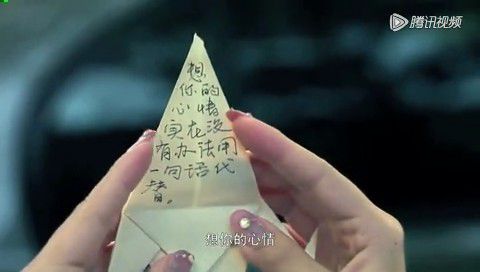 腾讯视频
想
你的
心绪
实在没
有办法用
一句话代
替。
想你的心情